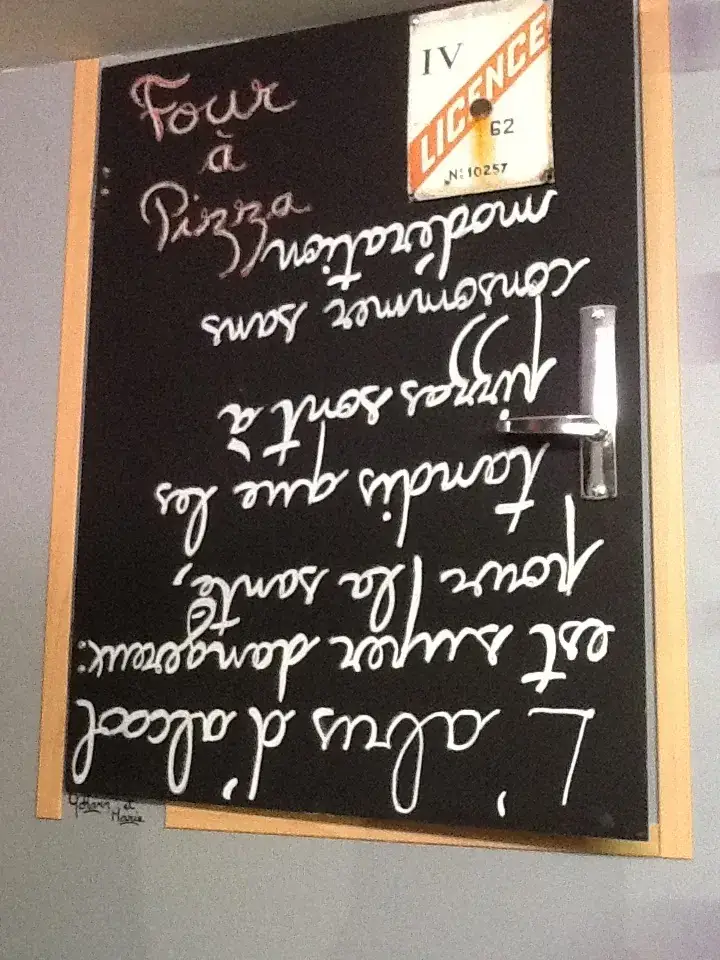 Four
à
Pizza
IV
LICENCE
62
N: 10257
L'abus d'alcool
est super dangereux:
pour la santé,
tandis que les
pizzas sont à
consommer sans
modération
et
Marie